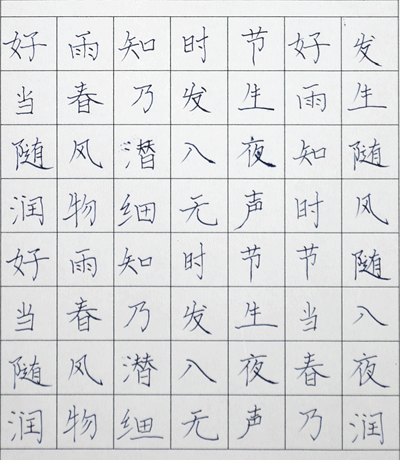 好雨知时节好发
当春乃发生雨生
随风潜入夜知随
润物细无声时风
好雨知时节节随
当春乃发生当入
随风潜入夜春夜
润物细无声乃润